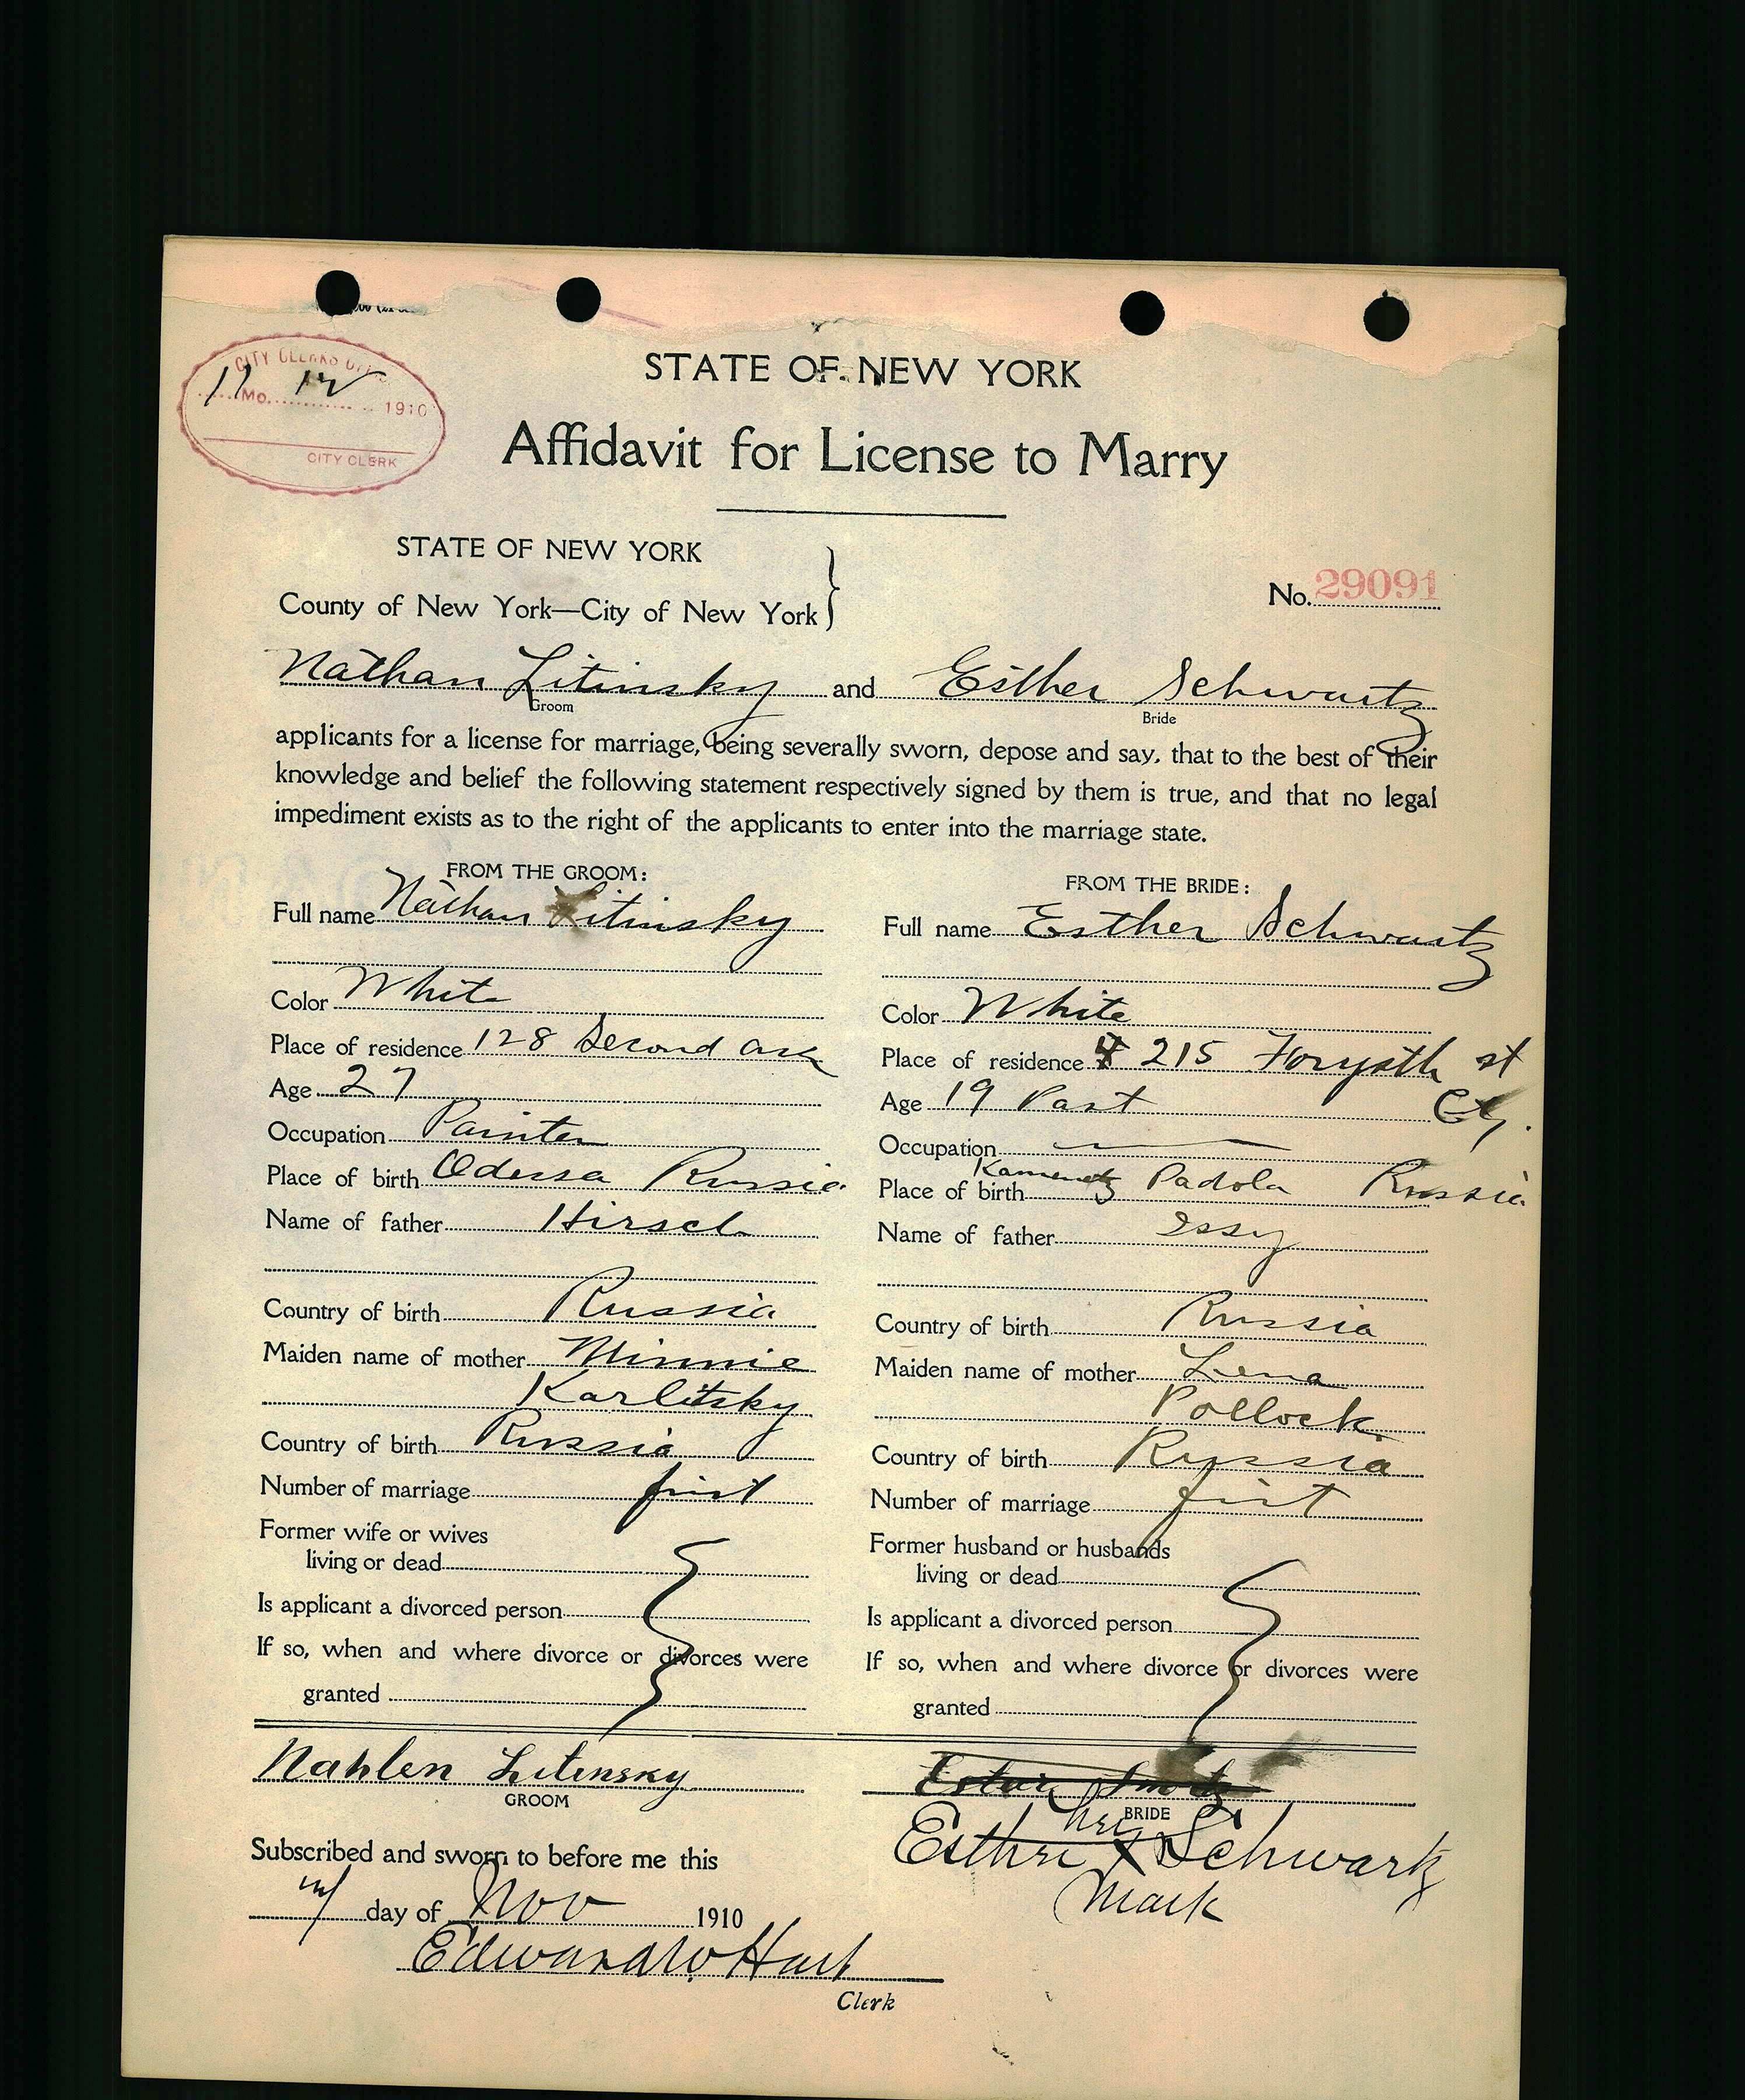 CITY CLERKS
11 12
Mo. 1910
CITY CLERK
STATE OF NEW YORK
Affidavit for License to Marry
STATE OF NEW YORK
County of New York—City of New York
No. 29091
Nathan Litinsky and Esther Schwartz
Groom Bride
applicants for a license for marriage, being severally sworn, depose and say, that to the best of their
knowledge and belief the following statement respectively signed by them is true, and that no legal
impediment exists as to the right of the applicants to enter into the marriage state.
FROM THE GROOM:
Full name Nathan Litinsky
Color White
Place of residence 128 Second Ave
Age 27
Occupation Painter
Place of birth Odessa Russia
Name of father Hirsch
Country of birth Russia
Maiden name of mother Minnie
Karlitsky
Country of birth Russia
Number of marriage first
Former wife or wives
living or dead
Is applicant a divorced person
If so, when and where divorce or divorces were
granted
FROM THE BRIDE:
Full name Esther Schwartz
Color White
Place of residence 215 Forsyth st
City.
Age 19 Past
Occupation
Place of birth Kamenetz Padola Russia
Name of father Issy
Country of birth Russia
Maiden name of mother Lena
Pollock
Country of birth Russia
Number of marriage first
Former husband or husbands
living or dead
Is applicant a divorced person
If so, when and where divorce or divorces were
granted
Nahten Litensky
GROOM
BRIDE
her
Esther X Schwartz
Mark
Subscribed and sworn to before me this
day of Nov 1910
Edward W Hart
Clerk